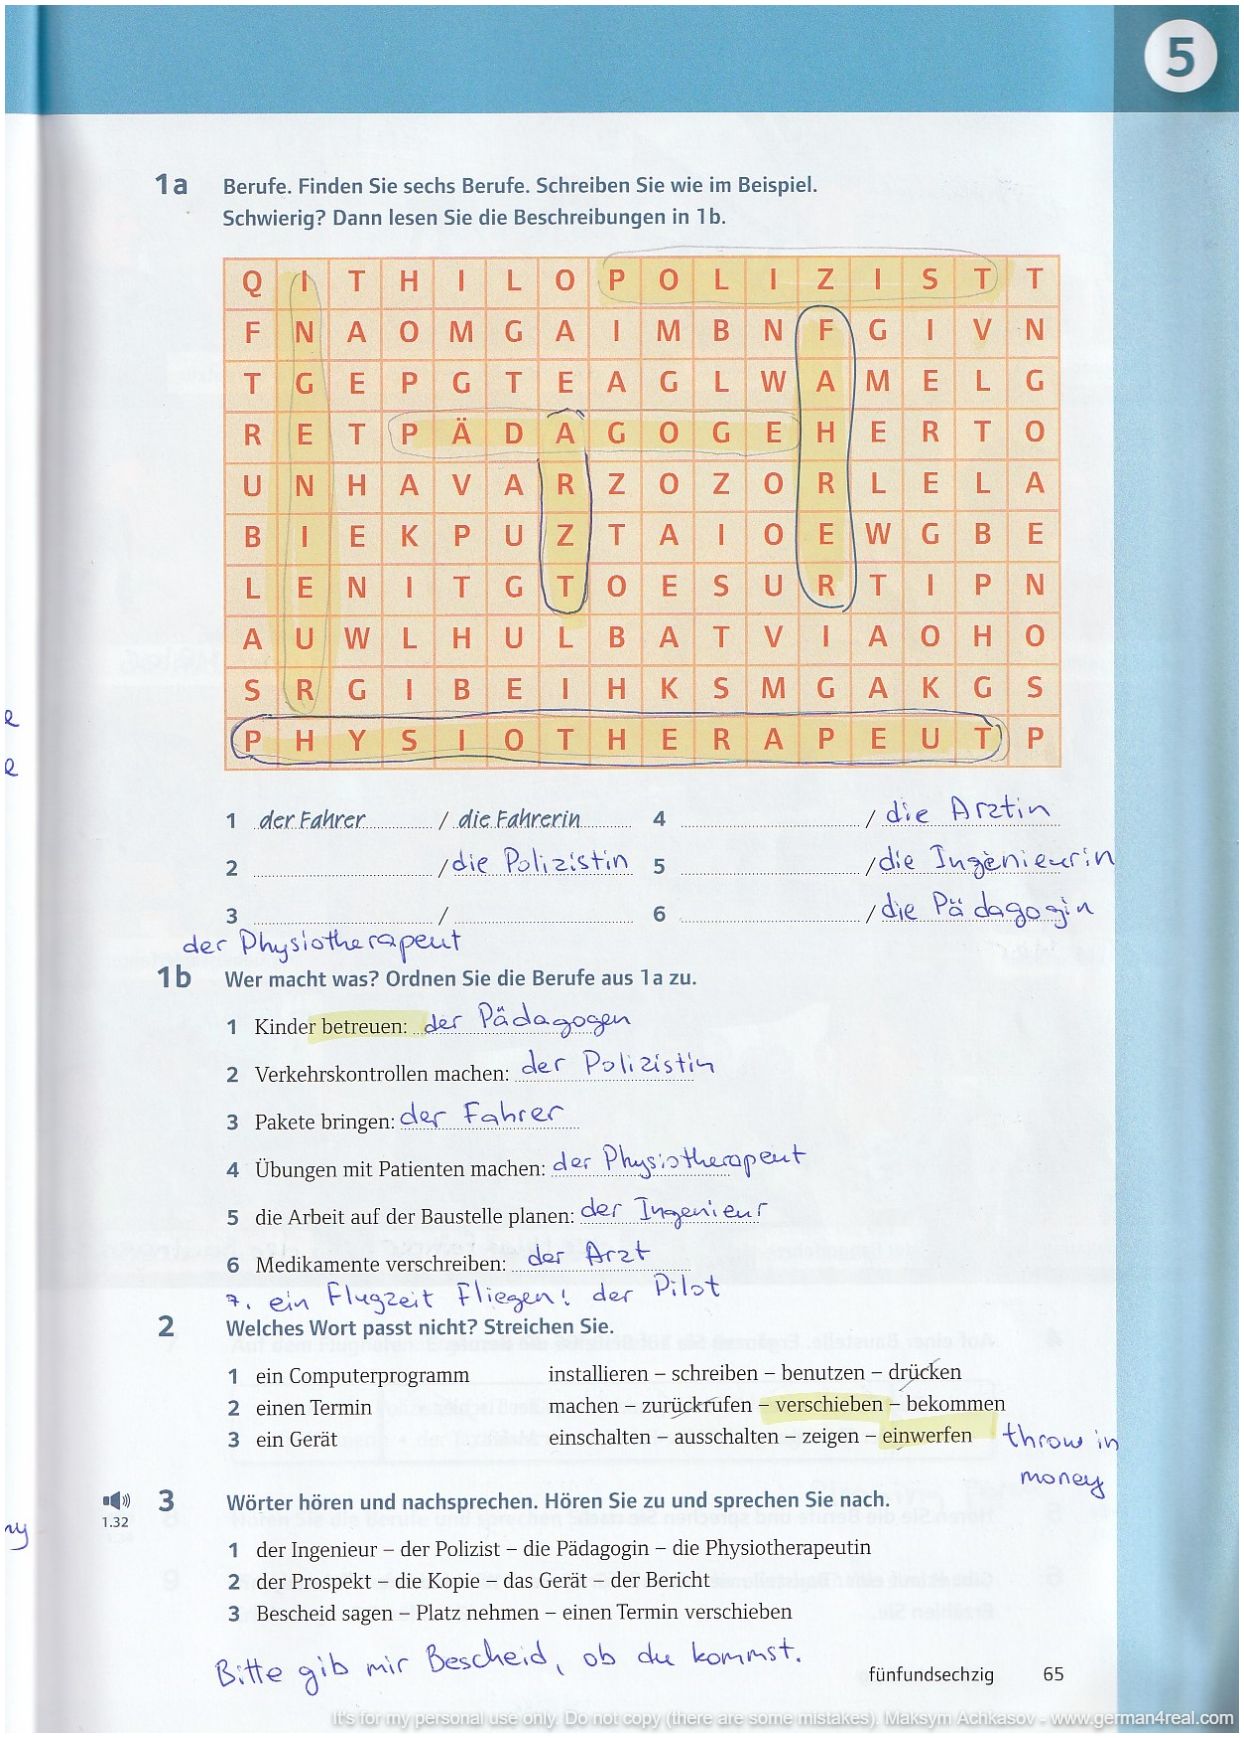 5
1a Berufe. Finden Sie sechs Berufe. Schreiben Sie wie im Beispiel.
Schwierig? Dann lesen Sie die Beschreibungen in 1b.
Q I T H I L O P O L I Z I S T T
F N A O M G A I M B N F G I V N
T G E P G T E A G L W A M E L G
R E T P Ä D A G O G E H E R T O
U N H A V A R Z O Z O R L E L A
B I E K P U Z T A I O E W G B E
L E N I T G T O E S U R T I P N
A U W L H U L B A T V I A O H O
S R G I B E I H K S M G A K G S
P H Y S I O T H E R A P E U T P
1 der Fahrer / die Fahrerin 4 / die Arztin
2 / die Polizistin 5 / die Ingènieurin
3 / 6 / die Pädagogin
der Physiotherapeut
1b Wer macht was? Ordnen Sie die Berufe aus 1a zu.
1 Kinder betreuen: der Pädagogen
2 Verkehrskontrollen machen: der Polizistin
3 Pakete bringen: der Fahrer
4 Übungen mit Patienten machen: der Physiotherapeut
5 die Arbeit auf der Baustelle planen: der Ingenieur
6 Medikamente verschreiben: der Arzt
7. ein Flugzeit Fliegen! der Pilot
2 Welches Wort passt nicht? Streichen Sie.
1 ein Computerprogramm installieren – schreiben – benutzen – drücken
2 einen Termin machen – zurückrufen – verschieben – bekommen
3 ein Gerät einschalten – ausschalten – zeigen – einwerfen throw in
money
3 Wörter hören und nachsprechen. Hören Sie zu und sprechen Sie nach.
1.32
1 der Ingenieur – der Polizist – die Pädagogin – die Physiotherapeutin
2 der Prospekt – die Kopie – das Gerät – der Bericht
3 Bescheid sagen – Platz nehmen – einen Termin verschieben
Bitte gib mir Bescheid, ob du kommst.
fünfundsechzig 65
It's for my personal use only. Do not copy (there are some mistakes). Maksym Achkasov - www.german4real.com